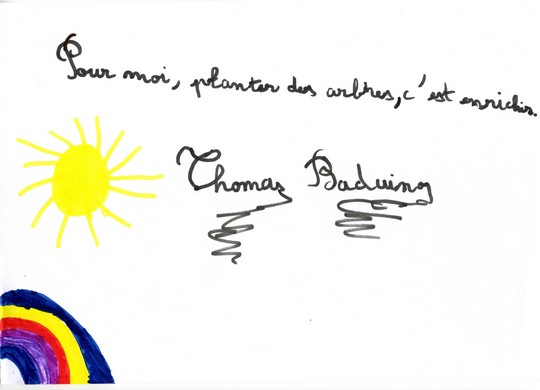 Pour moi, planter des arbres, c'est enrichir.
Thomas Baduing